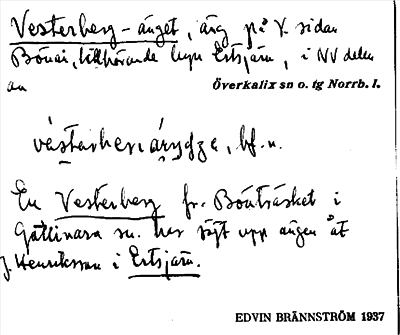 Vesterberg-änget, äng på V. sidan
Bönåi, tillhörande byn Ertsjärn, i NV delen
av Överkalix sn o. tg Norrb. l.
bf. n.
En Vesterberg fr. Bönträsket i
Gällivare sn. har röjt upp ängen åt
J. Henriksson i Ertsjärn.
EDVIN BRÄNNSTRÖM 1937